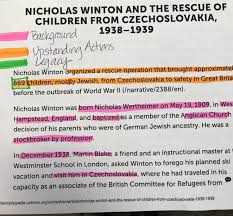 NICHOLAS WINTON AND THE RESCUE OF
CHILDREN FROM CZECHOSLOVAKIA,
1938–1939
Background
Upstanding Actions
Legacy
Nicholas Winton organized a rescue operation that brought approximat
669 children, mostly Jewish, from Czechoslovakia to safety in Great Brita
before the outbreak of World War II (/narrative/2388/en).
Nicholas Winton was born Nicholas Wertheim on May 19, 1909, in West
Hampstead, England, and baptized as a member of the Anglican Church
decision of his parents who were of German Jewish ancestry. He was a
stockbroker by profession.
In December 1938, Martin Blake, a friend and an instructional master at
Westminster School in London, asked Winton to forego his planned ski
vacation and visit him in Czechoslovakia, where he had traveled in his
capacity as an associate of the British Committee for Refugees from